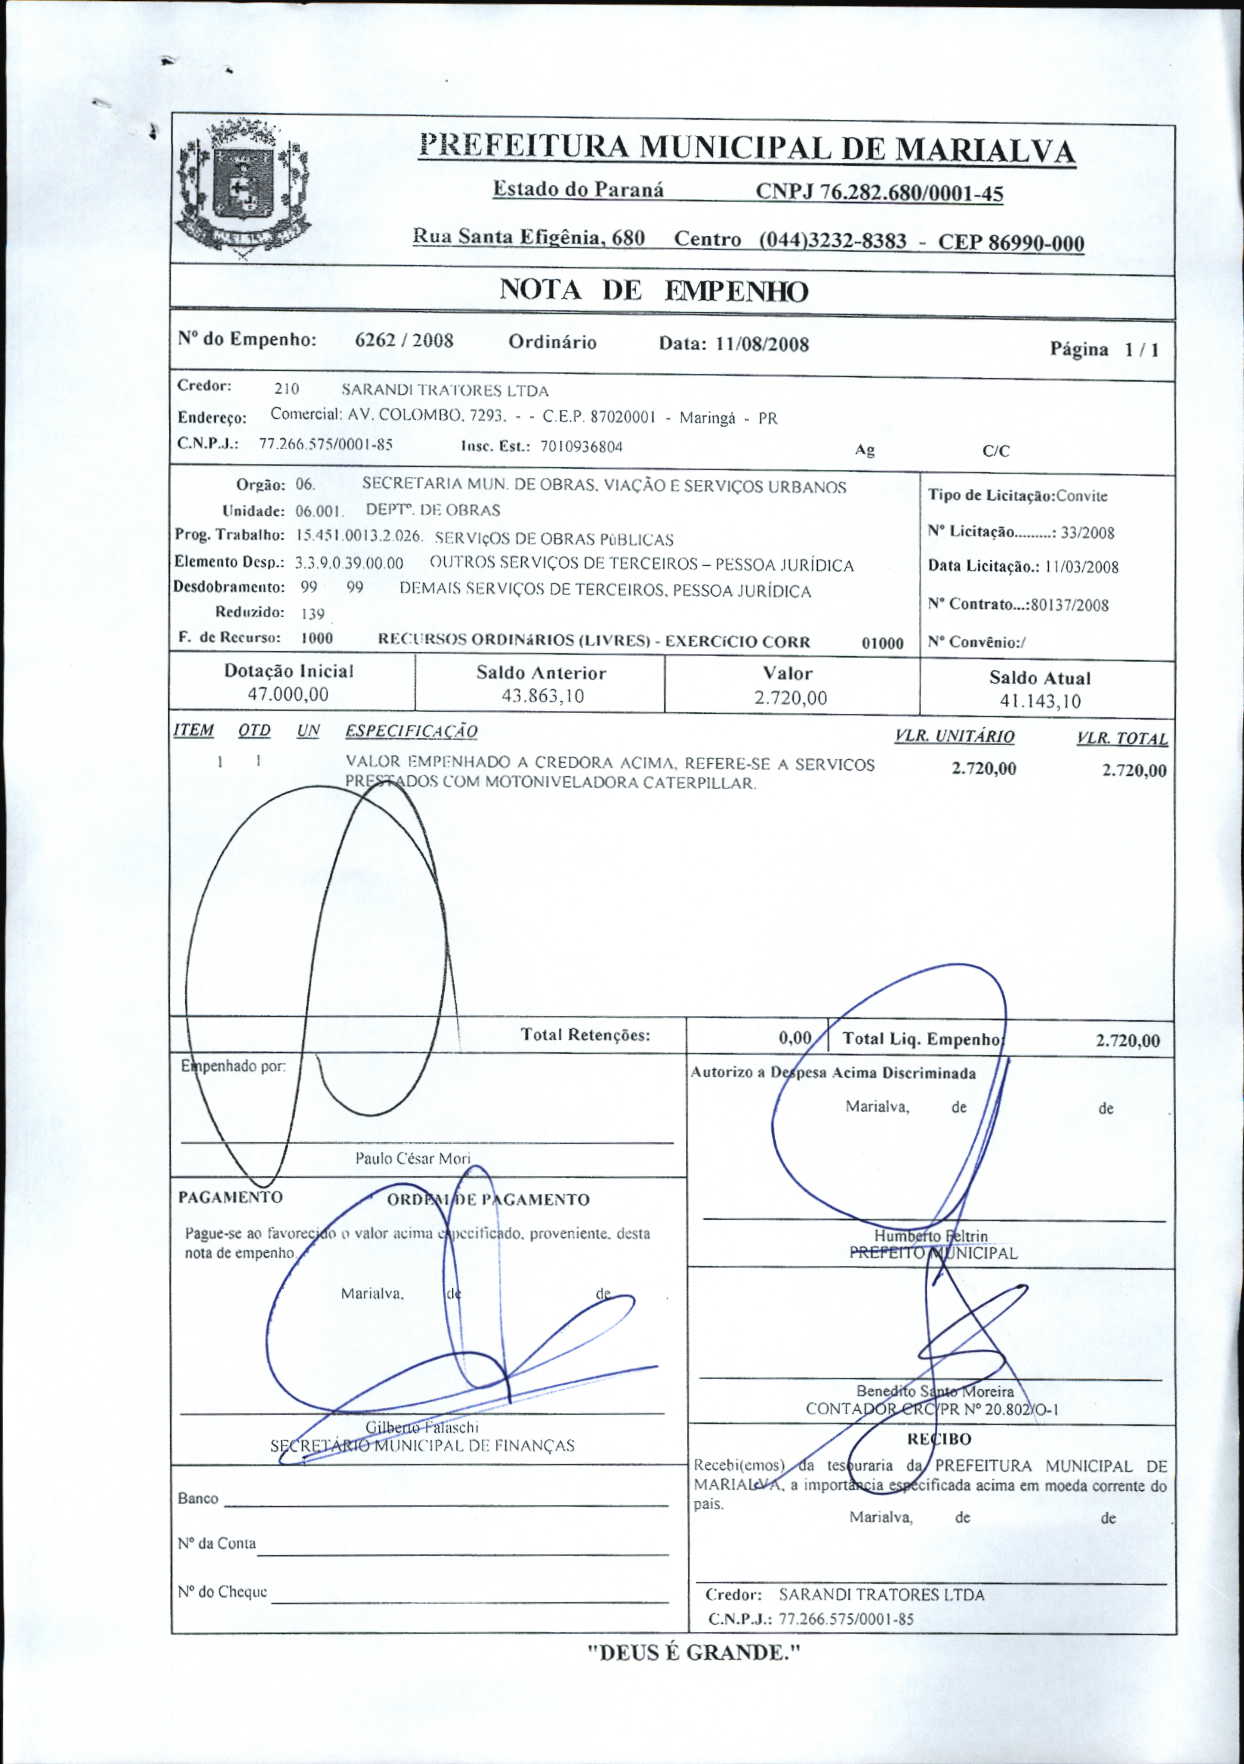 PREFEITURA MUNICIPAL DE MARIALVA
Estado do Paraná CNPJ 76.282.680/0001-45
Rua Santa Efigênia, 680 Centro (044)3232-8383 - CEP 86990-000
NOTA DE EMPENHO
Nº do Empenho: 6262 / 2008 Ordinário Data: 11/08/2008 Página 1 / 1
Credor: 210 SARANDI TRATORES LTDA
Endereço: Comercial: AV. COLOMBO, 7293, - - C.E.P. 87020001 - Maringá - PR
C.N.P.J.: 77.266.575/0001-85 Insc. Est.: 7010936804 Ag C/C
Orgão: 06. SECRETARIA MUN. DE OBRAS, VIAÇÃO E SERVIÇOS URBANOS
Unidade: 06.001. DEPTº. DE OBRAS
Prog. Trabalho: 15.451.0013.2.026. SERVIçOS DE OBRAS PúBLICAS
Elemento Desp.: 3.3.9.0.39.00.00 OUTROS SERVIÇOS DE TERCEIROS – PESSOA JURÍDICA
Desdobramento: 99 99 DEMAIS SERVIÇOS DE TERCEIROS, PESSOA JURÍDICA
Reduzido: 139
F. de Recurso: 1000 RECURSOS ORDINáRIOS (LIVRES) - EXERCíCIO CORR 01000
Tipo de Licitação:Convite
Nº Licitação.........: 33/2008
Data Licitação.: 11/03/2008
Nº Contrato...:80137/2008
Nº Convênio:/
Dotação Inicial Saldo Anterior Valor Saldo Atual
47.000,00 43.863,10 2.720,00 41.143,10
ITEM QTD UN ESPECIFICAÇÃO VLR. UNITÁRIO VLR. TOTAL
1 1 VALOR EMPENHADO A CREDORA ACIMA, REFERE-SE A SERVICOS 2.720,00 2.720,00
PRESTADOS COM MOTONIVELADORA CATERPILLAR.
Total Retenções: 0,00 Total Liq. Empenho: 2.720,00
Empenhado por:
Paulo César Mori
Autorizo a Despesa Acima Discriminada
Marialva, de de .
Humberto Feltrin
PREFEITO MUNICIPAL
PAGAMENTO ORDEM DE PAGAMENTO
Pague-se ao favorecido o valor acima especificado, proveniente, desta
nota de empenho.
Marialva, de de .
Gilberto Falaschi
SECRETÁRIO MUNICIPAL DE FINANÇAS
Benedito Santo Moreira
CONTADOR CRC/PR Nº 20.802/O-1
RECIBO
Recebi(emos) da tesouraria da PREFEITURA MUNICIPAL DE
MARIALVA, a importância especificada acima em moeda corrente do
país.
Marialva, de de .
Banco
Nº da Conta
Nº do Cheque
Credor: SARANDI TRATORES LTDA
C.N.P.J.: 77.266.575/0001-85
"DEUS É GRANDE."